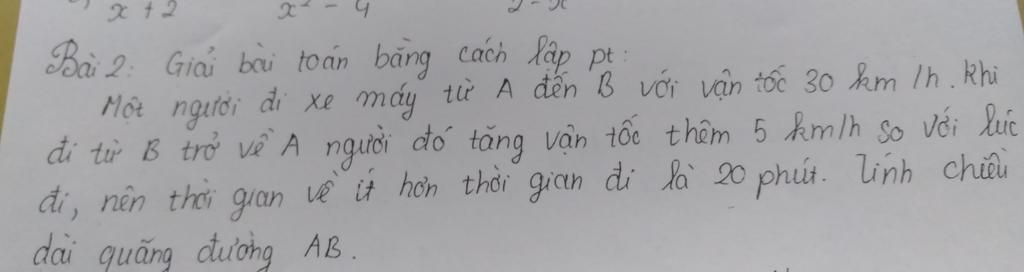 x + 2 x² - 4 2 - x
Bài 2: Giải bài toán bằng cách lập pt:
Một người đi xe máy từ A đến B với vận tốc 30 km/h. Khi
đi từ B trở về A người đó tăng vận tốc thêm 5 km/h so với lúc
đi, nên thời gian về ít hơn thời gian đi là 20 phút. Tính chiều
dài quãng đường AB.